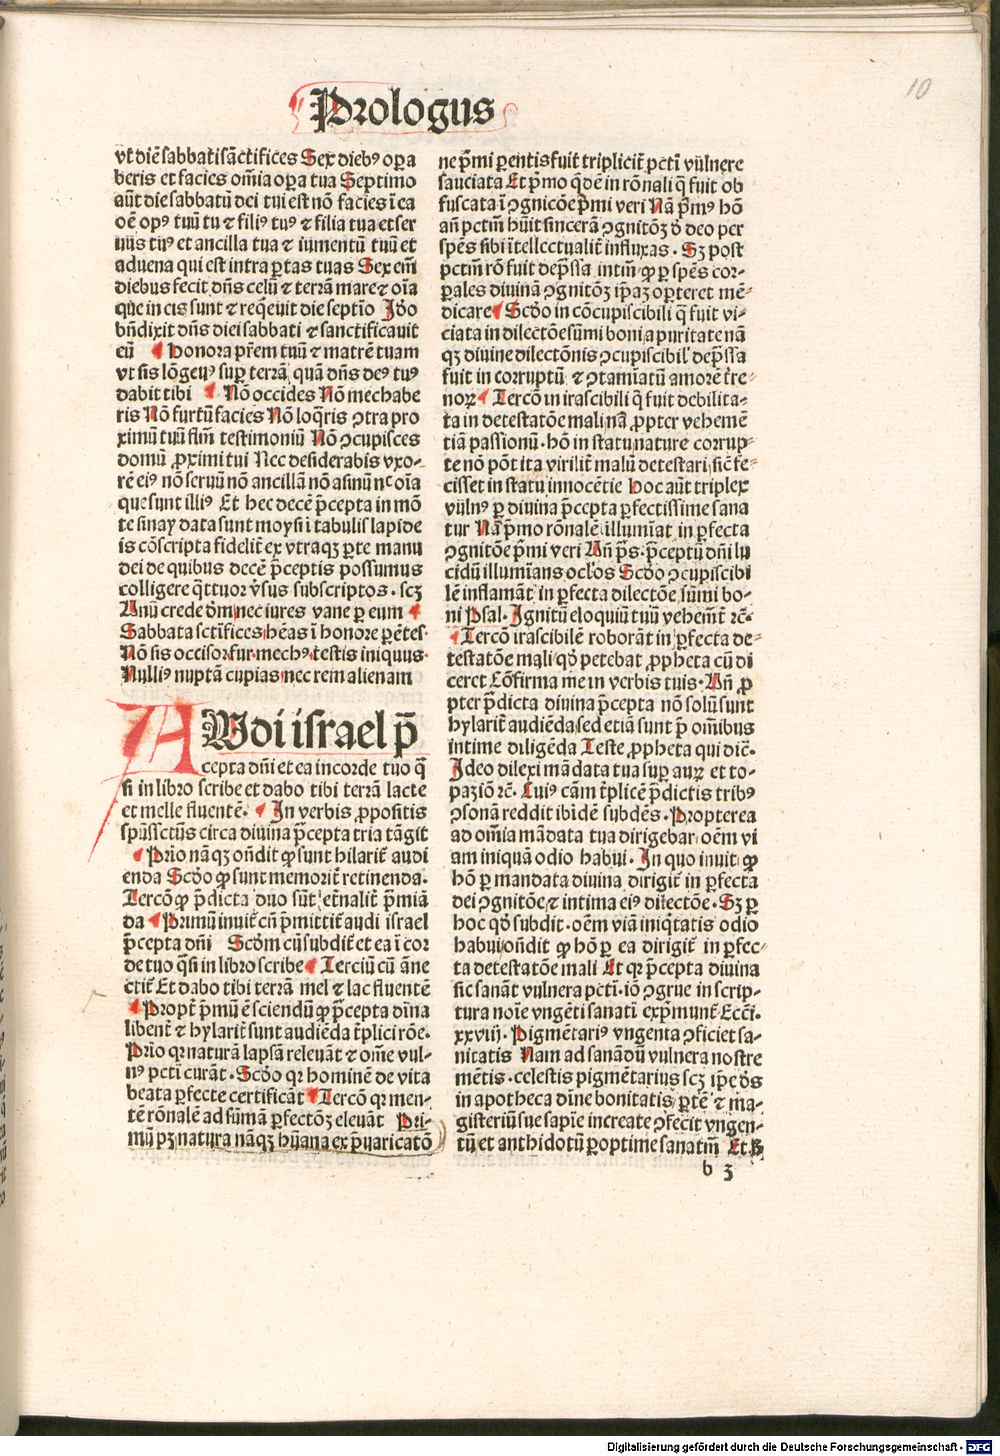 10
Prologus
vt diē sabbati sāctifices Sex diebꝰ oꝑa
beris et facies om̄ia oꝑa tua Septimo
aūt die sabbatū dei tui est nō facies ī ea
oē opꝰ tuū tu ⁊ filiꝰ tuꝰ ⁊ filia tua et ser
uus tuꝰ et ancilla tua ⁊ iumentū tuū et
aduena qui est intra ꝑtas tuas Sex em̄
diebus fecit dn̄s celū ⁊ terrā mare ⁊ oīa
que in eis sunt ⁊ reqͥeuit die septīo Jdo
bn̄dixit dn̄s diei sabbati ⁊ sanctificauit
eū Honora pr̄em tuū ⁊ matrē tuam
vt sis lōgeuꝰ suꝑ terrā quā dn̄s deꝰ tuꝰ
dabit tibi Nō occides Nō mechabe
ris Nō furtū facies Nō loqͥris ꝯtra pro
ximū tuū flm̄ testimoniū Nō ꝯcupisces
domū ꝓximi tui Nec desiderabis vxo-
rē eiꝰ nō seruū nō ancillā nō asinū nͨ oīa
que sunt illiꝰ Et hec decē p̄cepta in mō
te sinay data sunt moysi ī tabulis lapide
is cōscripta fidelit̄ ex vtraqꝫ ꝑte manu
dei de quibus decē p̄ceptis possumus
colligere qͣttuor v̄sus subscriptos . scꝫ
Unū crede dm̄ nec iures vane ꝑ eum
Sabbata sctīfices hēas ī honore ꝑētes.
Nō sis occisor fur mechꝰ testis iniquus.
Nulliꝰ nuptā cupias nec rem alienam
AUdi israel p̄
cepta dn̄i et ea in corde tuo qͣ
si in libro scribe et dabo tibi terrā lacte
et melle fluentē. In verbis ꝓpositis
spūssctūs circa diuina p̄cepta tria tāgit
Prio nāqꝫ on̄dit ꝙ sunt hilarit̄ audi
enda Scd̄o ꝙ sunt memorit̄ retinenda.
Tercō ꝙ p̄dicta duo sūt et̄nalit̄ p̄miā
da Primū inuit̄ cū p̄mittit̄ audi israel
p̄cepta dn̄i Scd̄m cū subdit̄ et ea ī cor
de tuo qͣsi in libro scribe Terciū cū āne
ctit̄ Et dabo tibi terrā mel ⁊ lac fluentē
Propt̄ p̄mū ē sciendū ꝙ p̄cepta diīna
libent̄ ⁊ hylarit̄ sunt audiēda t̄plici rōe.
Prio qꝛ naturā lapsā releuāt ⁊ om̄e vul-
nꝰ pcti curāt . Scd̄o qꝛ hominē de vita
beata ꝑfecte certificāt Tercō qꝛ men-
tē rōnalē ad sūmā ꝑfectōꝫ eleuāt Pri-
mū pꝫ natura nāqꝫ hūana ex p̄uaricatō
ne p̄mi ꝑentis fuit triplicit̄ pcti vulnere
sauciata Et p̄mo qͥdē in rōnali q̄ fuit ob
fuscata ī ꝯgnicōe p̄mi veri Nā p̄mꝰ hō
an̄ pctm̄ hūit sincerā ꝯgnitōꝫ d̄ deo per
spēs sibi ītellectualit̄ influxas . Sꝫ post
pctm̄ rō fuit dep̄ssa intm̄ ꝙ ꝑ spēs cor-
ꝑales diuinā ꝯgnitōꝫ ip̄aꝫ oꝑteret mē-
dicare Scd̄o in cōcupiscibili q̄ fuit vi-
ciata in dilectōe sūmi boni a puritate nā
qꝫ diuine dilectōnis ꝯcupiscibil̓ dep̄ssa
fuit in corruptū ⁊ ꝯtamīatū amorē t̄re-
noꝝ Tercō in irascibili q̄ fuit debilita-
ta in detestatōe mali nā ꝓpter vehemē
tiā passionū . hō in statu nature corrup-
te nō pōt ita virilit̄ malū detestari sic̄ fe-
cisset in statu innocētie Hoc aūt triplex
vulnꝰ ꝑ diuina p̄cepta ꝑfectissime sana
tur Nā p̄mo rōnalē illumīat in ꝑfecta
ꝯgnitōe p̄mi veri Un̄ ps. p̄ceptū dn̄i lu
cidū illumīans ocl̓os Scd̄o ꝯcupiscibi
lē inflamāt in ꝑfecta dilectōe sūmi bo-
ni Psal. Jgnitū eloquiū tuū vehemēt̄ rē.
Tercō irascibilē roborāt in ꝑfecta de-
testatōe mali qd̄ petebat ꝓpheta cū di
ceret Cōfirma me in verbis tuis . Un̄ ꝓ
pter p̄dicta diuina p̄cepta nō solū sunt
hylarit̄ audiēda sed etiā sunt p̄ om̄ibus
intime diligēda Teste ꝓpheta qui dic̄.
Jdeo dilexi mādata tua suꝑ auꝝ et to-
pazion rē. Cuiꝰ cām t̄plicē p̄dictis tribꝰ
ꝯsonā reddit ibidē subdēs . Propterea
ad om̄ia mādata tua dirigebar oēm vi
am iniquā odio habui . In quo inuit ꝙ
hō ꝑ mandata diuina dirigit̄ in ꝑfecta
dei ꝯgnitōe ⁊ intima eiꝰ dilectōe . Sꝫ ꝑ
hoc qd̄ subdit . oēm viā iniqͥtatis odio
habui on̄dit ꝙ hō ꝑ ea dirigit̄ in ꝑfec-
ta detestatōe mali Et qꝛ p̄cepta diuina
sic sanāt vulnera pcti . iō ꝯgrue in scrip-
tura noīe vngēti sanati exp̄munt̄ Eccī.
xxviij. Pigmētariꝰ vngenta ꝯficiet sa-
nitatis Nam ad sanādū vulnera nostre
mētis . celestis pigmētarius scꝫ ip̄e ds̄
in apotheca diīne bonitatis ꝑte ⁊ ma-
gisteriū sue sapīe increate ꝯfecit vngen-
tū et anthidotū ꝑoptime sanatm̄ Et ħ
b 3
Digitalisierung gefördert durch die Deutsche Forschungsgemeinschaft - DFG